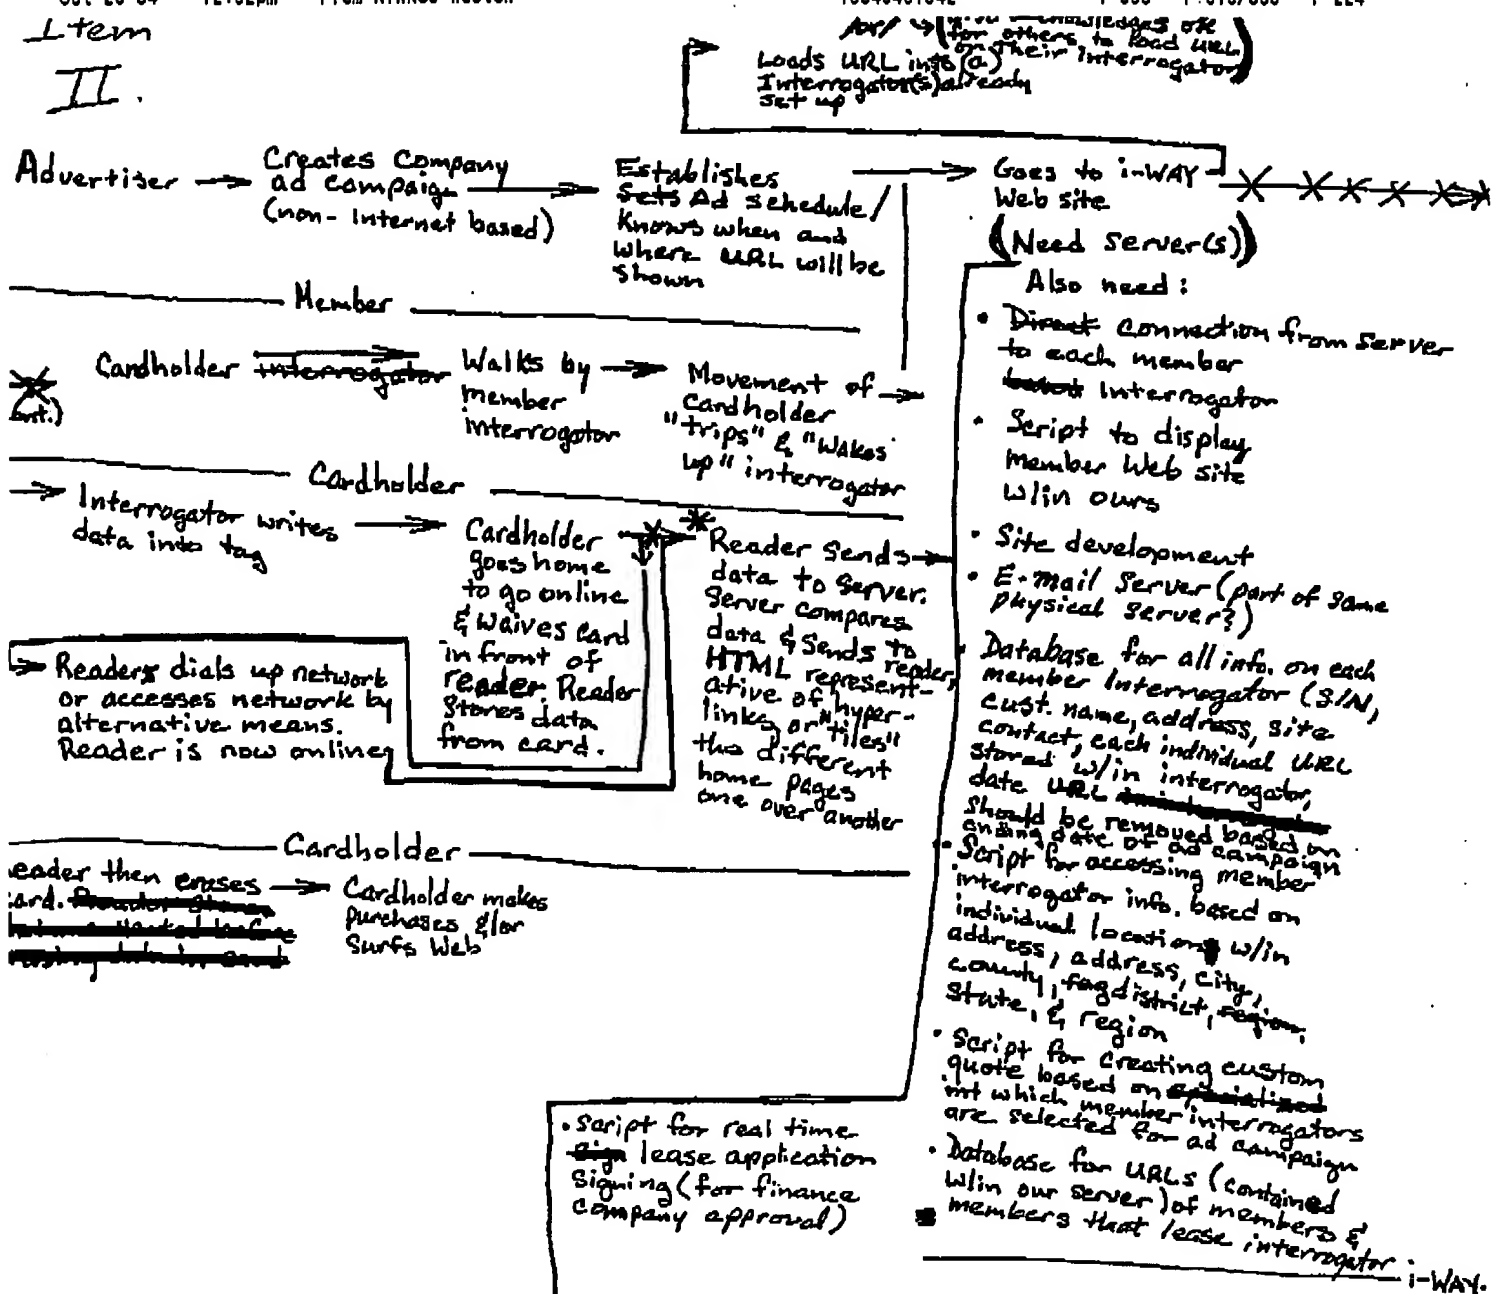 Item
II.
/or/ → (
for others to load URL
on their interrogator)
Loads URL into (a)
Interrogator(s) already
set up
Advertiser → Creates Company
ad campaign
(non-Internet based)
Establishes
Sets Ad schedule/
Knows when and
where URL will be
shown
Goes to i-WAY
Web site
(Need server(s))
Also need:
• Direct connection from server
to each member
Interrogator
• Script to display
member Web site
w/in ours
• Site development
• E-mail Server (part of same
physical server?)
• Database for all info. on each
member Interrogator (S/N,
cust. name, address, site
contact, each individual URL
stored w/in interrogator,
date URL
should be removed based on
ending date of ad campaign
• Script for accessing member
interrogator info. based on
individual location w/in
address, address, city,
county, district, region,
state, & region
• Script for creating custom
quote based on specialized
which member interrogators
are selected for ad campaign
• Database for URLs (contained
w/in our server) of members &
members that lease interrogator
i-WAY.
Member
Cardholder interrogator
Walks by
member
interrogator
Movement of
Cardholder
"trips" & "wakes
up" interrogator
Cardholder
Interrogator writes
data into tag
Cardholder
goes home
to go online
& waives card
in front of
reader. Reader
stores data
from card.
Reader sends
data to server.
Server compares
data & sends to
HTML represent- reader,
ative of hyper-
links, or "tiles"
the different
home pages
one over another
Readers dials up network
or accesses network by
alternative means.
Reader is now online
Cardholder
eader then erases
ard.
Cardholder makes
purchases &/or
Surfs Web
• Script for real time
sign lease application
signing (for finance
company approval)